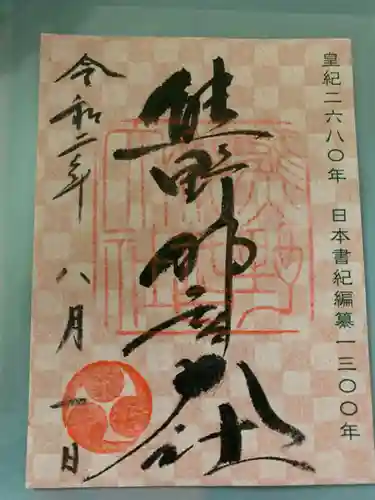 皇紀二六八〇年 日本書紀編纂一三〇〇年
熊野
社
令和二年 八月 一日